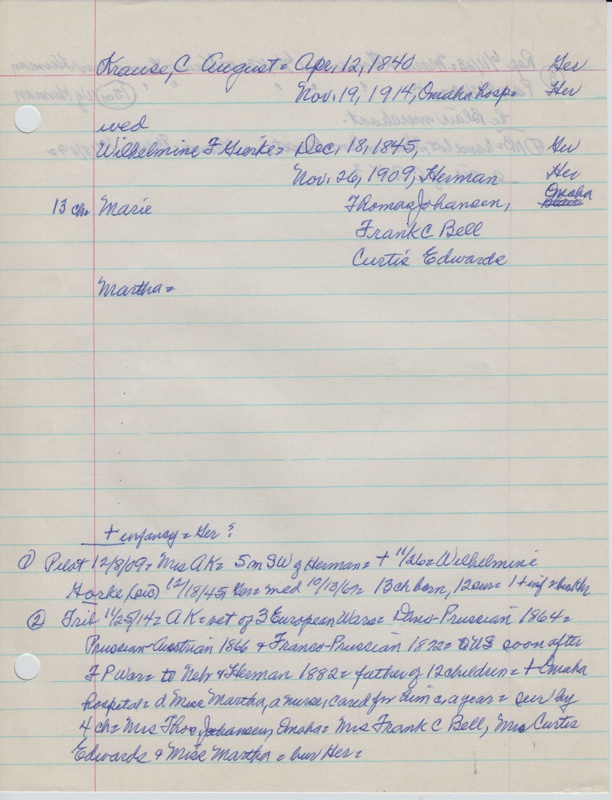 Krause, C August = Apr, 12, 1840 Ger
Nov. 19, 1914, Omaha hosp = Her
wed
Wilhelmine F Gierke = Dec, 18, 1845, Ger
Nov. 26, 1909, Herman Her
13 ch Marie Thomas Johansen, Omaha
Frank C Bell
Curtis Edwards
Martha =
+ infancy = Her ?
① Pilot 12/8/09 = Mrs AK = 5 m SW of Herman = + 11/26 = Wilhelmine
Horke (sic) 12/18/45 Ger = wed 10/13/67 = 13 ch born, 12 sur = 1 + inf = bur Her
② Trib 11/25/14 = AK = vet of 3 European Wars = Dano-Prussian 1864 =
Prussian-Austrian 1866 & Franco-Prussian 1872 = to US soon after
F P War = to Nebr & Herman 1882 = father of 12 children = + Omaha
hospital = d Miss Martha, a nurse, cared for him c, a year = sur by
4 ch = Mrs Thos Johansen, Omaha = Mrs Frank C Bell, Mrs Curtis
Edwards & Miss Martha = bur Her =